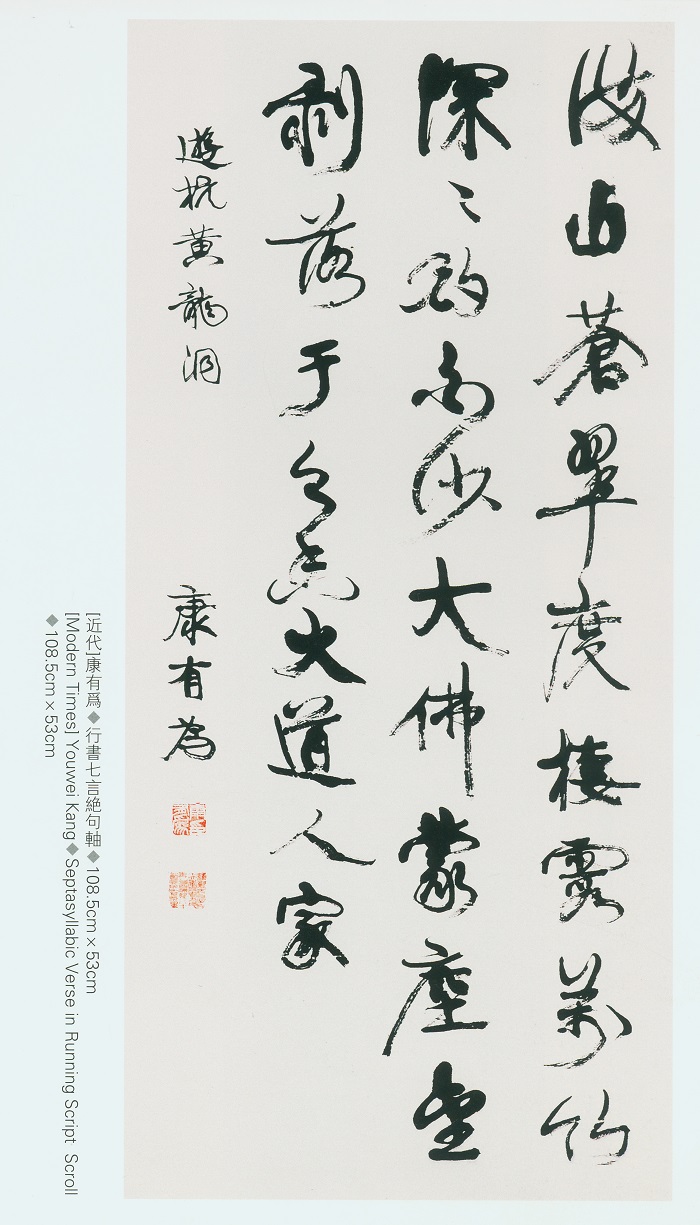 山蒼翠度棲霞萬竹
深〻沙大佛蒙塵
剝落于今香火道人家
遊杭黃龍洞
康有為
[近代]康有爲◆行書七言絕句軸◆108.5cm×53cm
[Modern Times] Youwei Kang◆Septasyllabic Verse in Running Script Scroll
◆108.5cm×53cm